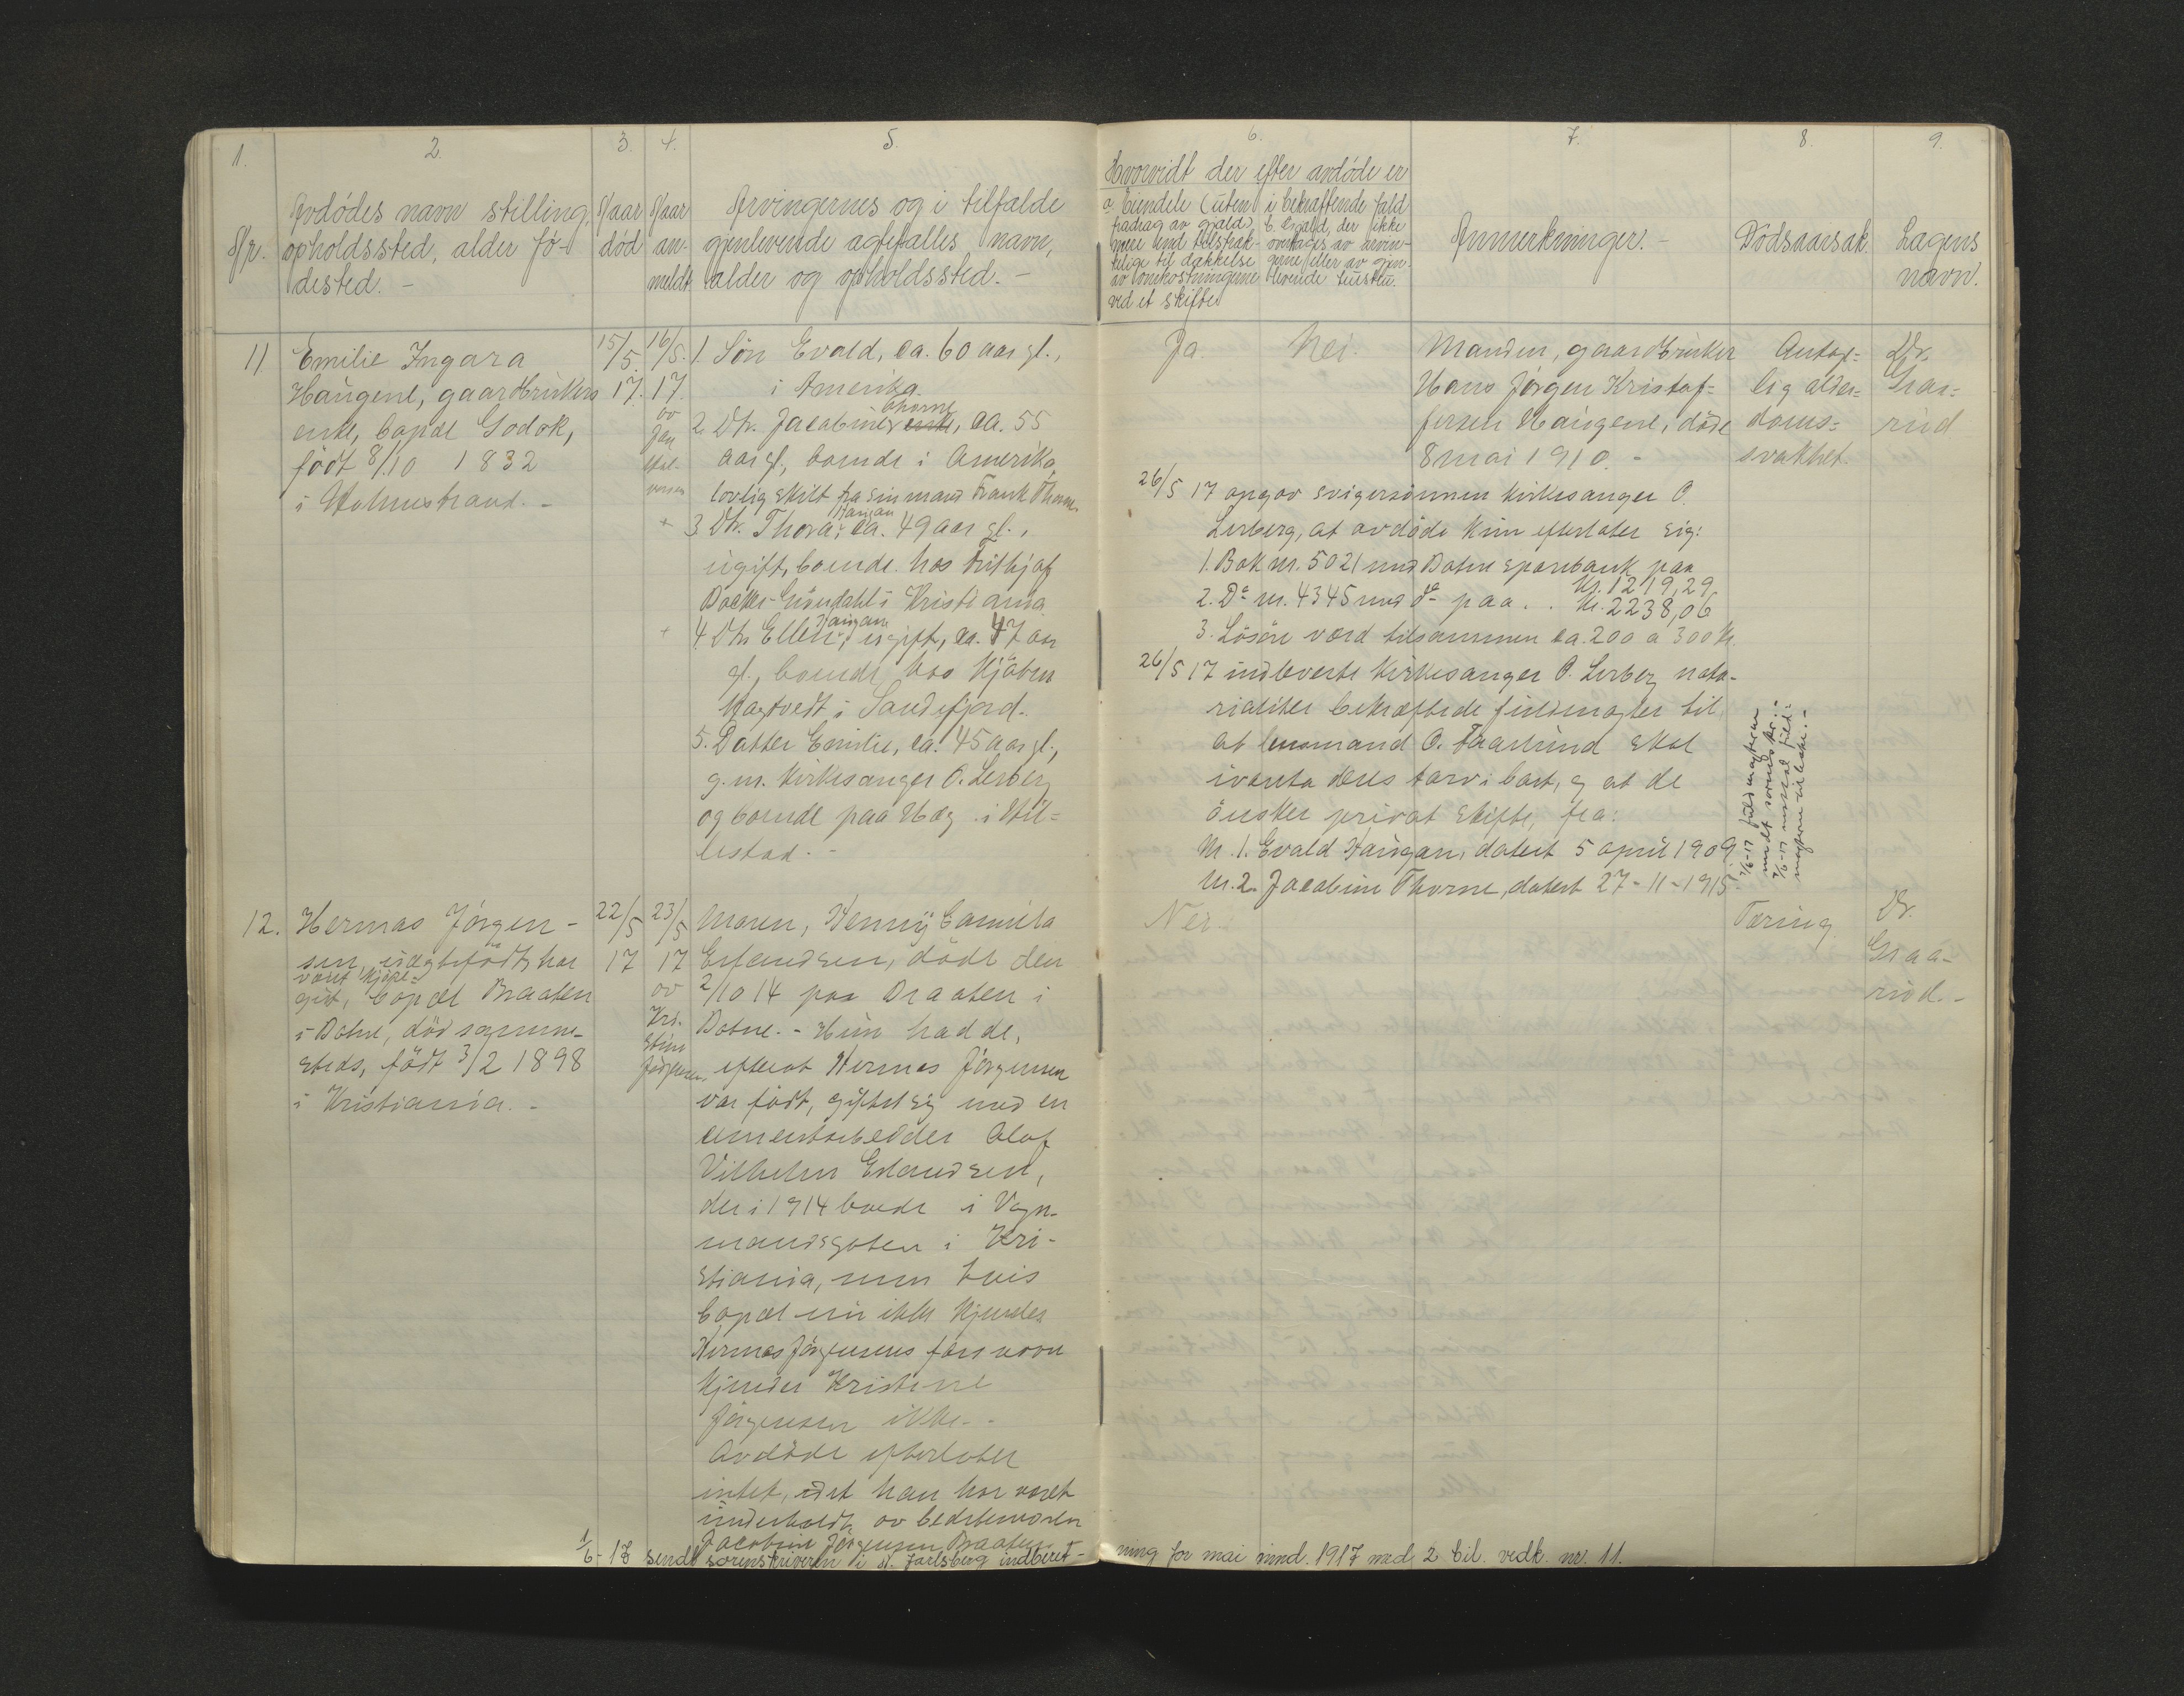 1.
2.
3.
4.
5.
6.
7.
8.
9.
Nr.
Avdødes navn stilling,
opholdssted, alder fø-
dested. -
Naar
død
Naar
an-
meldt
Arvingernes og i tilfælde
gjenlevende ægtefælles navn,
alder og opholdssted. -
Hvorvidt der efter avdøde er
a. Eiendele (uten
fradrag av gjæld)
mere end tilstræk-
kelige til dækkelse
av omkostningerne
ved et skifte
i bekræftende fald
b. Gjæld, der ikke
overtages av arvin-
gerne eller av gjen-
levende
Anmerkninger. -
Dødsaarsak.
Lægens
navn.
11
Emilie Ingara
Haugene, gaardbrukers
enke, bopæl Godok,
født 8/10 1832
i Holmestrand. -
15/5.
17.
16/5.
17.
av
1. Søn Evald, ca. 60 aar gl.,
i Amerika.
2. Dtr. Jacobine Thorne, ca. 55
aar gl., boende i Amerika,
lovlig skilt fra sin mand Frank Thorne.
+ 3. Dtr. Thora Haugan ca. 49 aar gl.,
ugift, boende hos Frithjof
Backe-Grøndahl i Kristiania.
+ 4. Dtr. Ellen Haugan, ugift, ca. 47 aar
gl., boende hos Kjøbm
i Sandefjord.
5. Datter Emilie, ca. 45 aar gl.,
g. m. kirkesanger O. Lerberg
og boende paa Hæg i Stil=
lestad. -
Ja.
Nei.
Manden, gaardbruker
Hans Jørgen Kristof=
fersen Haugene, døde
8 mai 1910. -
Antage=
lig alder=
doms=
svakhet.
Dr.
Graa=
rud
26/5 17 opgav svigersønnen kirkesanger O.
Lerberg, at avdøde kun efterlater sig:
1. Bok nr. 5021 med Botne sparebank paa
Kr. 1219,29
2. Do nr. 4345 med do paa . . Kr. 2238,06
3. Løsøre værd tilsammen ca. 200 a 300 kr.
26/5 17 indleverte kirkesanger O. Lerberg nota-
rialiter bekræftede fuldmagter til
at lensmand O. Faaslund skal
ivareta deres tarv i boet, og at de
ønsker privat skifte, fra:
Nr. 1. Evald Haugan, datert 5 april 1909.
Nr. 2. Jacobine Thorne, datert 27-11-1915.
12.
Hermas Jørgen-
sen, uægtefødt, har
været kjøpe=
gut, bopæl Braaten
i Botne, død samme-
steds, født 3/2 1898
i Kristiania. -
22/5
17
23/5
17
av
Kri-
stine
Jørgensen.
Moren, Henny Camilla
Erlandsen, døde den
2/10 14 paa Braaten i
Botne. - Hun hadde,
efterat Hermas Jørgensen
var født, giftet sig med en
cementarbeider Olaf
Vilhelm Erlandsen,
der i 1914 boede i Vogn-
mandsgaten i Kri-
stiania, men hvis
bopæl nu ikke kjendes
Hermas Jørgensens fars navn
kjender Kristine
Jørgensen ikke. -
Avdøde efterlater
intet, idet han har været
underholdt av bedstemoren
Jacobine Jørgensen, Braaten.
Nei.
Tæring.
Dr.
Graa-
rud. -
1/6-17 sendt sorenskriveren i N. Jarlsberg indberet-
ning for mai mnd. 1917 med 2 bil. vedk. nr. 11.